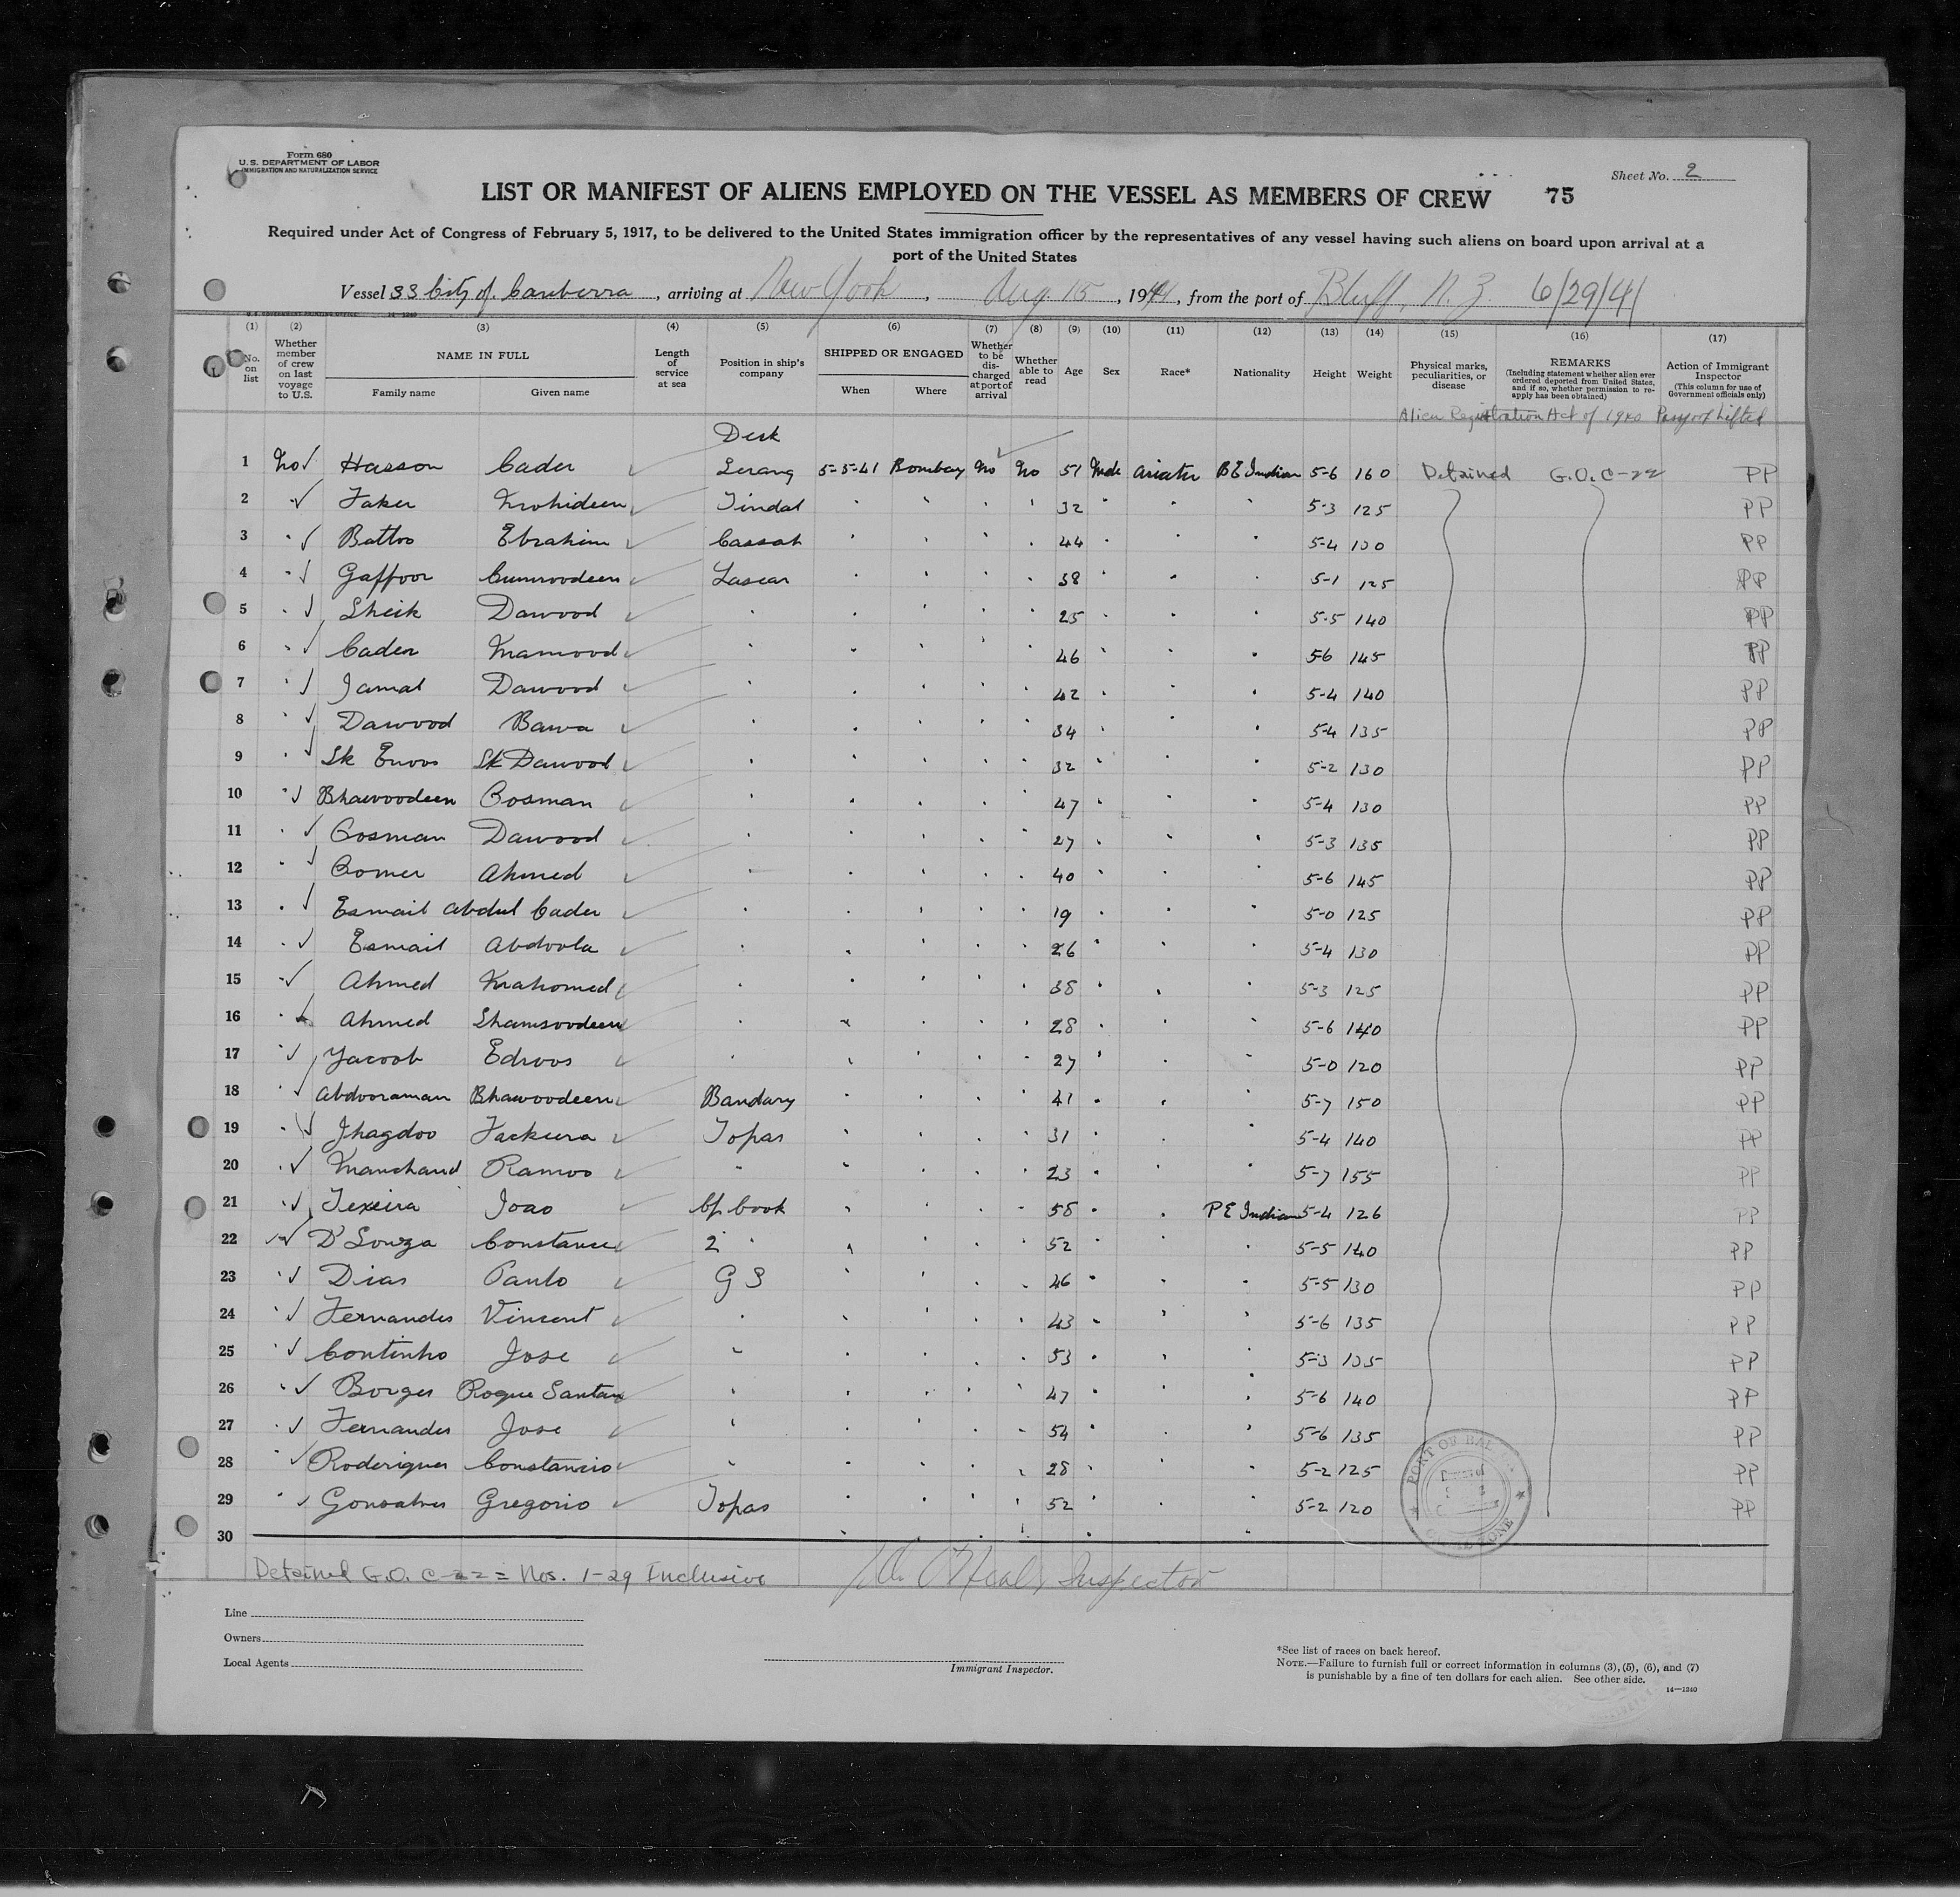 Form 680
U.S. DEPARTMENT OF LABOR
IMMIGRATION AND NATURALIZATION SERVICE
Sheet No. 2
LIST OR MANIFEST OF ALIENS EMPLOYED ON THE VESSEL AS MEMBERS OF CREW 75
Required under Act of Congress of February 5, 1917, to be delivered to the United States immigration officer by the representatives of any vessel having such aliens on board upon arrival at a
port of the United States
Vessel SS City of Canberra, arriving at New York, Aug 15, 1941, from the port of Bluff, N. Z. 6/29/41
(1) (2) (3) (4) (5) (6) (7) (8) (9) (10) (11) (12) (13) (14) (15) (16) (17)
No. on list
Whether member of crew on last voyage to U.S.
NAME IN FULL
Family name Given name
Length of service at sea
Position in ship's company
SHIPPED OR ENGAGED
When Where
Whether to be discharged at port of arrival
Whether able to read
Age
Sex
Race*
Nationality
Height
Weight
Physical marks, peculiarities, or disease
REMARKS
(Including statement whether alien ever ordered deported from United States, and if so, whether permission to reapply has been obtained)
Action of Immigrant Inspector
(This column for use of Government officials only)
Alien Registration Act of 1940
Deck
1 No ✓ Hasson Cader ✓ Serang 5-5-41 Bombay No No 51 Male Asiatic B E Indian 5-6 160 Detained G.O. C-22 PP
2 " ✓ Faker Mohideen ✓ Tindal " " " " 32 " " " 5-3 125 PP
3 " ✓ Battoo Ebrahim ✓ Cassab " " " " 44 " " " 5-4 130 PP
4 " ✓ Gaffoor Cumroodeen ✓ Lascar " " " " 38 " " " 5-1 125 PP
5 " ✓ Sheik Dawood ✓ " " " " " 25 " " " 5-5 140 PP
6 " ✓ Cader Mamood ✓ " " " " " 46 " " " 5-6 145 PP
7 " ✓ Jamal Dawood ✓ " " " " " 42 " " " 5-4 140 PP
8 " ✓ Dawood Bawa ✓ " " " " " 34 " " " 5-4 135 PP
9 " ✓ Sk Enoos Sk Dawood ✓ " " " " " 32 " " " 5-2 130 PP
10 " ✓ Bhawoodeen Oosman ✓ " " " " " 47 " " " 5-4 130 PP
11 " ✓ Oosman Dawood ✓ " " " " " 27 " " " 5-3 135 PP
12 " ✓ Oomer Ahmed ✓ " " " " " 40 " " " 5-6 145 PP
13 " ✓ Esmail Abdul Cader ✓ " " " " " 19 " " " 5-0 125 PP
14 " ✓ Esmail Abdoola ✓ " " " " " 26 " " " 5-4 130 PP
15 " ✓ Ahmed Mahomed ✓ " " " " " 38 " " " 5-3 125 PP
16 " ✓ Ahmed Shamsoodeen ✓ " " " " " 28 " " " 5-6 140 PP
17 " ✓ Yacoob Edroos ✓ " " " " " 27 " " " 5-0 120 PP
18 " ✓ Abdooraman Bhawoodeen ✓ Bandary " " " " 41 " " " 5-7 150 PP
19 " ✓ Jhagdoo Fackeera ✓ Topas " " " " 31 " " " 5-4 140 PP
20 " ✓ Manchand Ramoo ✓ " " " " " 23 " " " 5-7 155 PP
21 " ✓ Texeira Joao ✓ Cf Cook " " " " 58 " " P E Indian 5-4 126 PP
22 " ✓ D'Souza Constance ✓ 2 " " " " " 52 " " " 5-5 140 PP
23 " ✓ Dias Paulo ✓ G S " " " " 46 " " " 5-5 130 PP
24 " ✓ Fernandes Vincent ✓ " " " " " 43 " " " 5-6 135 PP
25 " ✓ Coutinho Jose ✓ " " " " " 53 " " " 5-3 135 PP
26 " ✓ Borges Roque Santan ✓ " " " " " 47 " " " 5-6 140 PP
27 " ✓ Fernandes Jose ✓ " " " " " 54 " " " 5-6 135 PP
28 " ✓ Roderigues Constancio ✓ " " " " " 28 " " " 5-2 125 PP
29 " ✓ Gonsalves Gregorio ✓ Topas " " " " 52 " " " 5-2 120 PP
30
PORT OF BAL
Detained G.O. C-22 = Nos. 1-29 Inclusive
O'Neal, Inspector
Line
Owners
Local Agents
Immigrant Inspector.
*See list of races on back hereof.
NOTE.—Failure to furnish full or correct information in columns (3), (5), (6), and (7)
is punishable by a fine of ten dollars for each alien. See other side.
14—1240